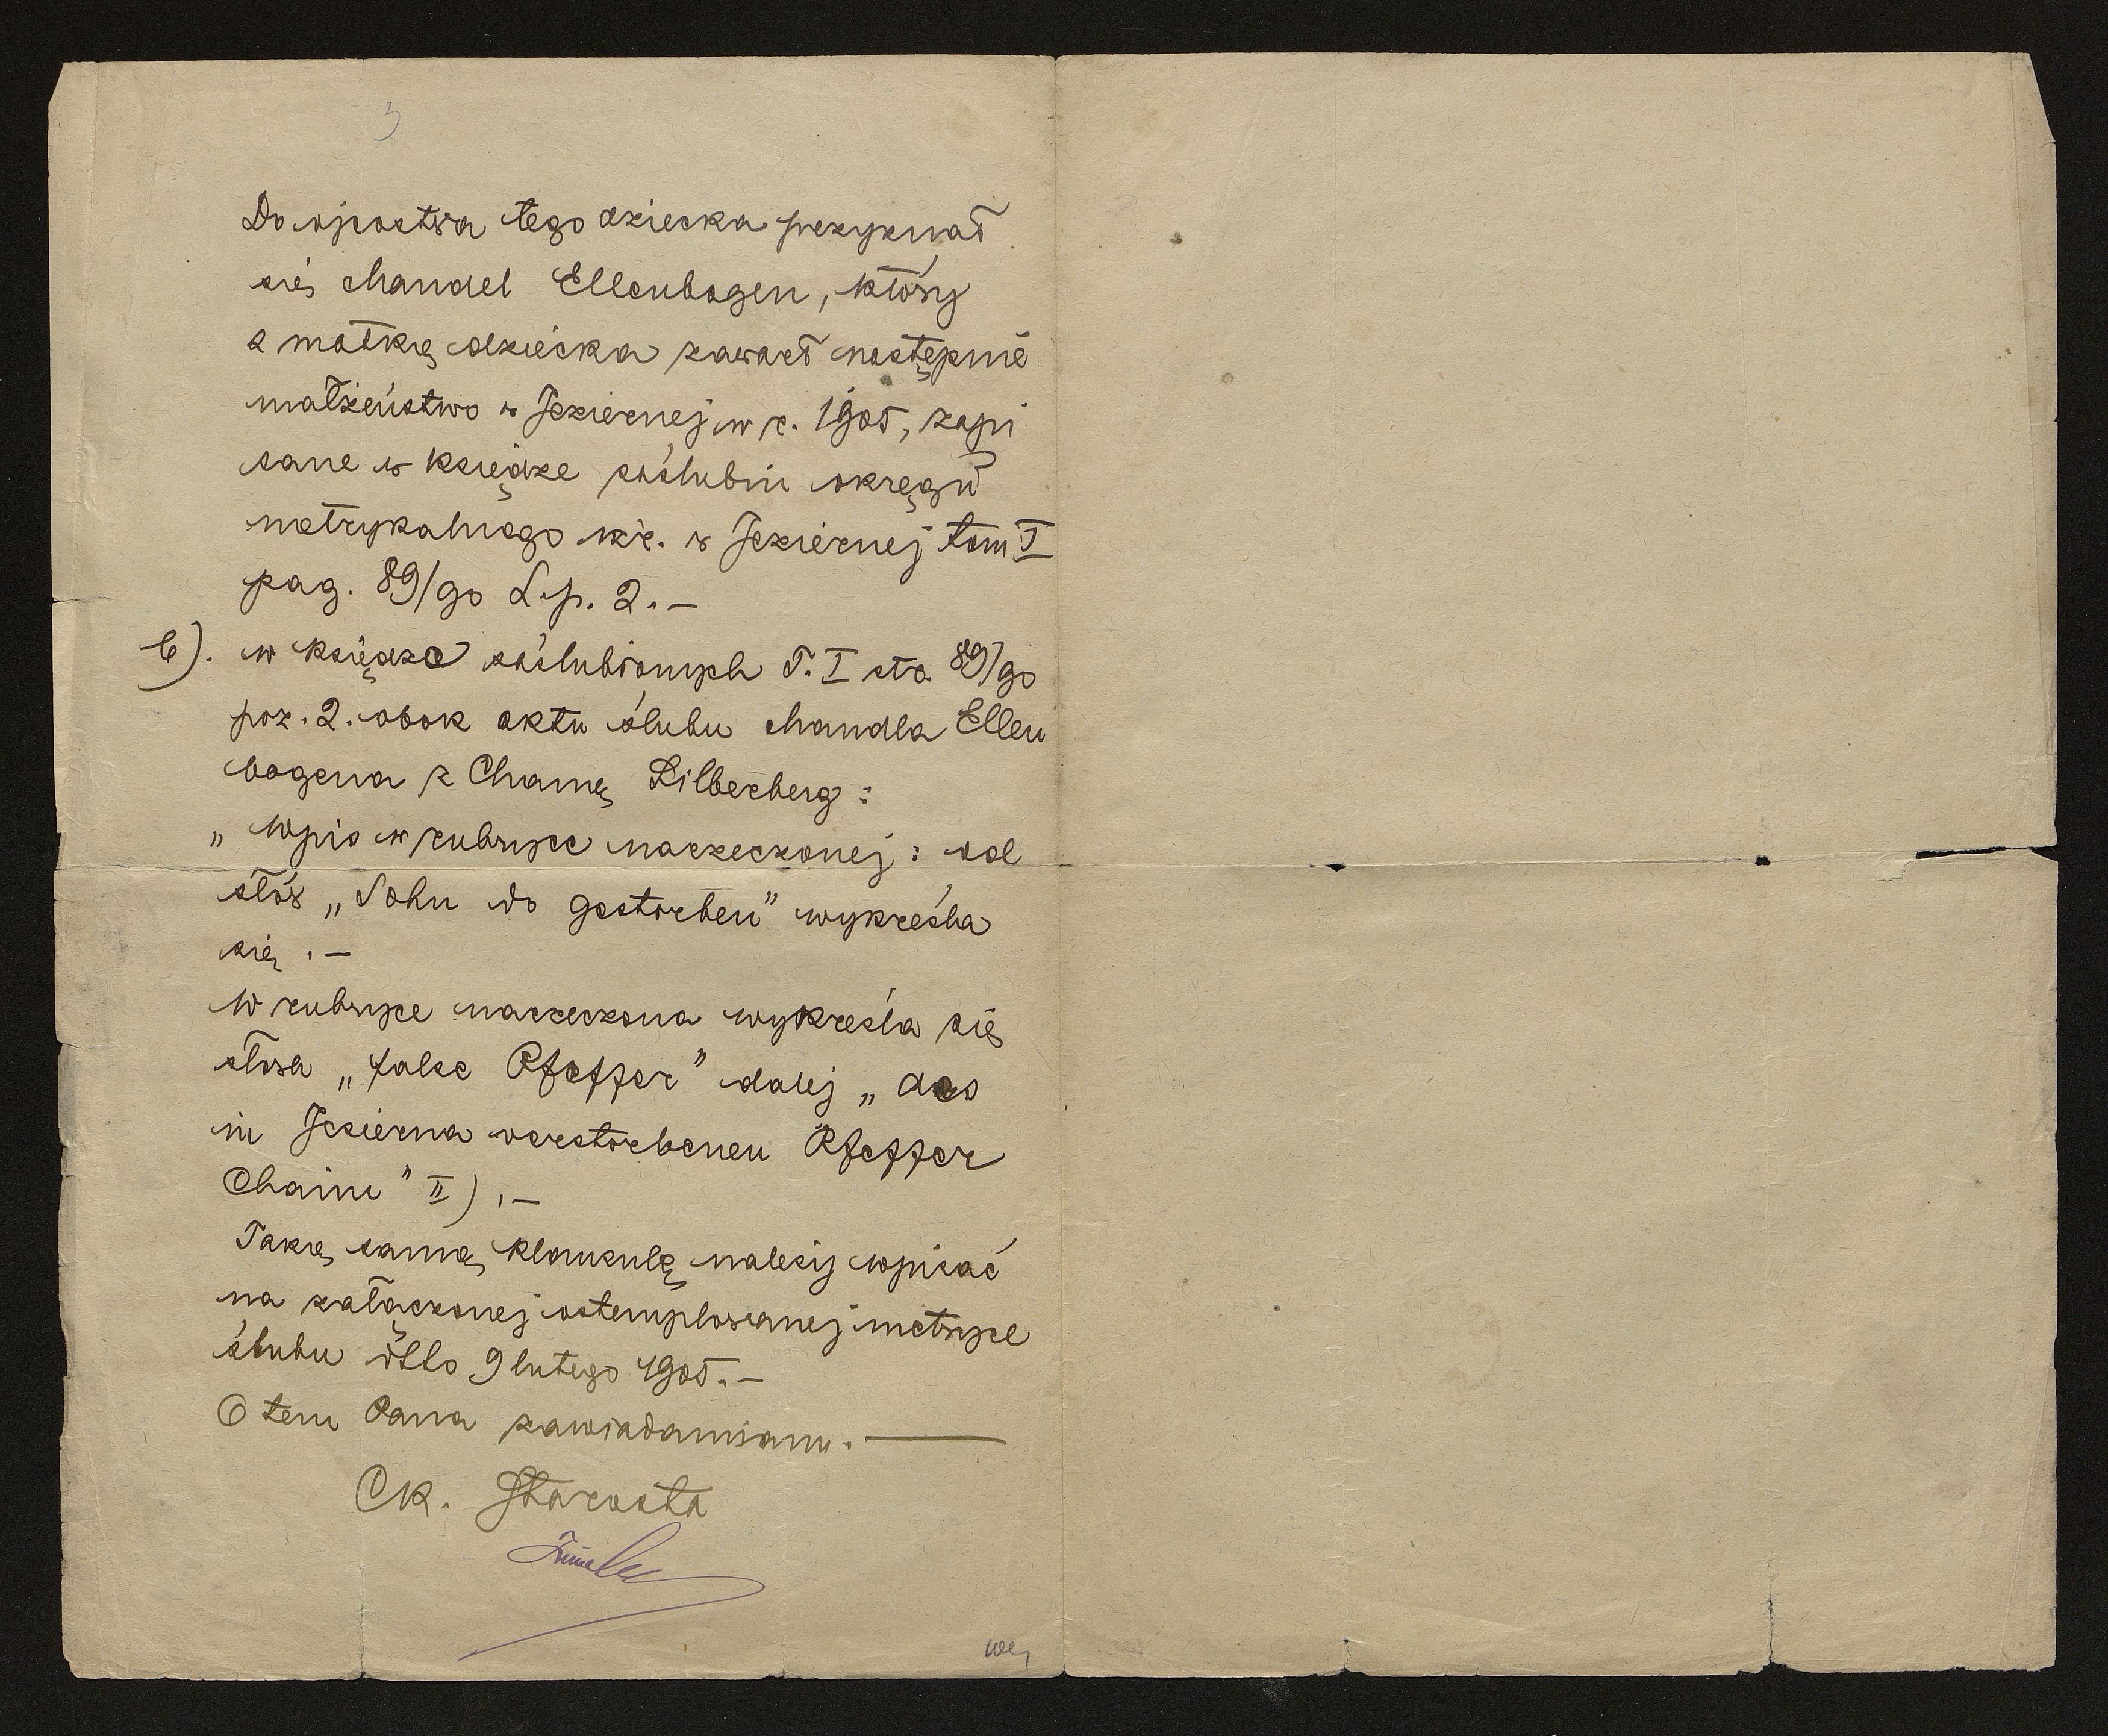 3
Do ojcostwa tego dziecka przyznał
się Mandel Ellenbogen, który
z matką dziecka zawarł następnie
małżeństwo w Jeziernej w r. 1905, zapi
sane w księdze zaślubin okręgu
metrykalnego izr. w Jeziernej tom I
pag. 89/90 L.p. 2. –
b). w księdze zaślubionych T. I str. 89/90
poz. 2. obok aktu ślubu Mandla Ellen
bogena z Chaną Zilberberg :
„ Wpis w rubryce narzeczonej : od
słów „Sohn do gestorben" wykreśla
się . –
W rubryce narzeczona wykreśla się
słowa „false Pfeffer" dalej „ des
in Jezierna verstorbenen Pfeffer
Chaim" II) . –
Taką samą klauzulę należy wpisać
na załączonej ostemplowanej metryce
ślubu ddto 9 lutego 1905. –
O tem Pana zawiadamiam. —
CK. Starosta